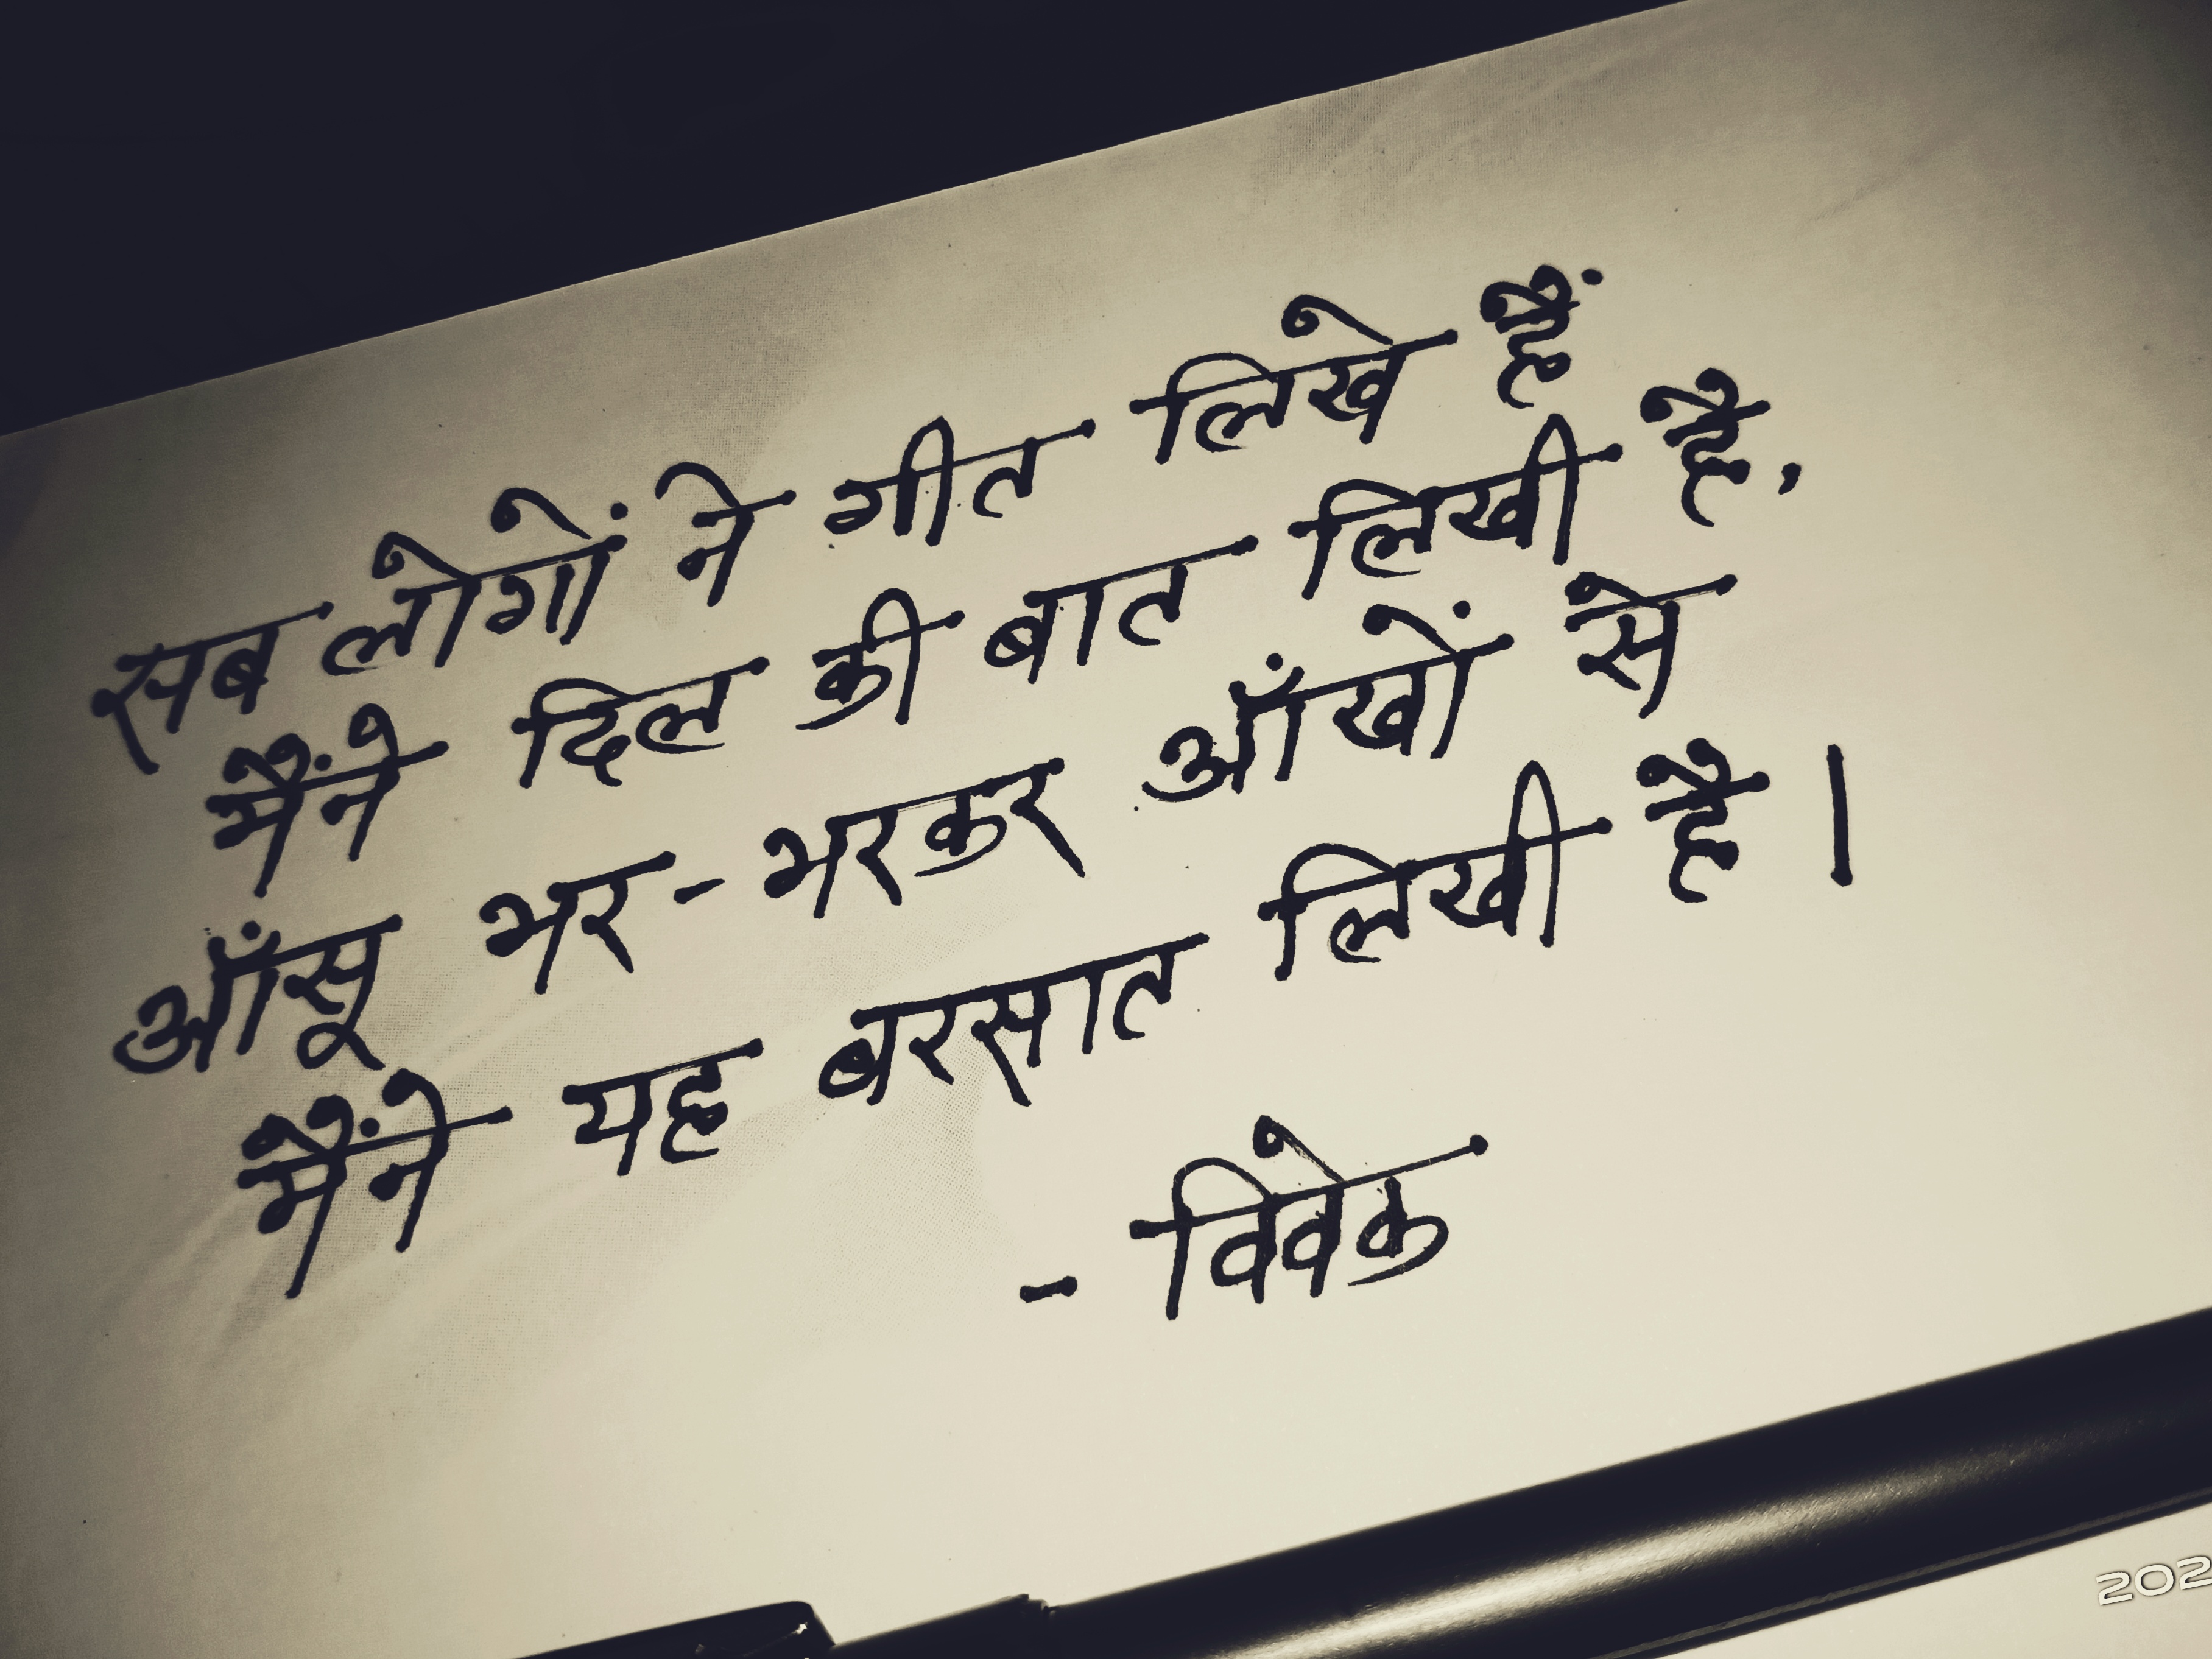 सब लोगों ने गीत लिखे हैं
मैंने दिल की बात लिखी है,
आँसू भर-भरकर आँखों से
मैंने यह बरसात लिखी है।
- विवेक
202